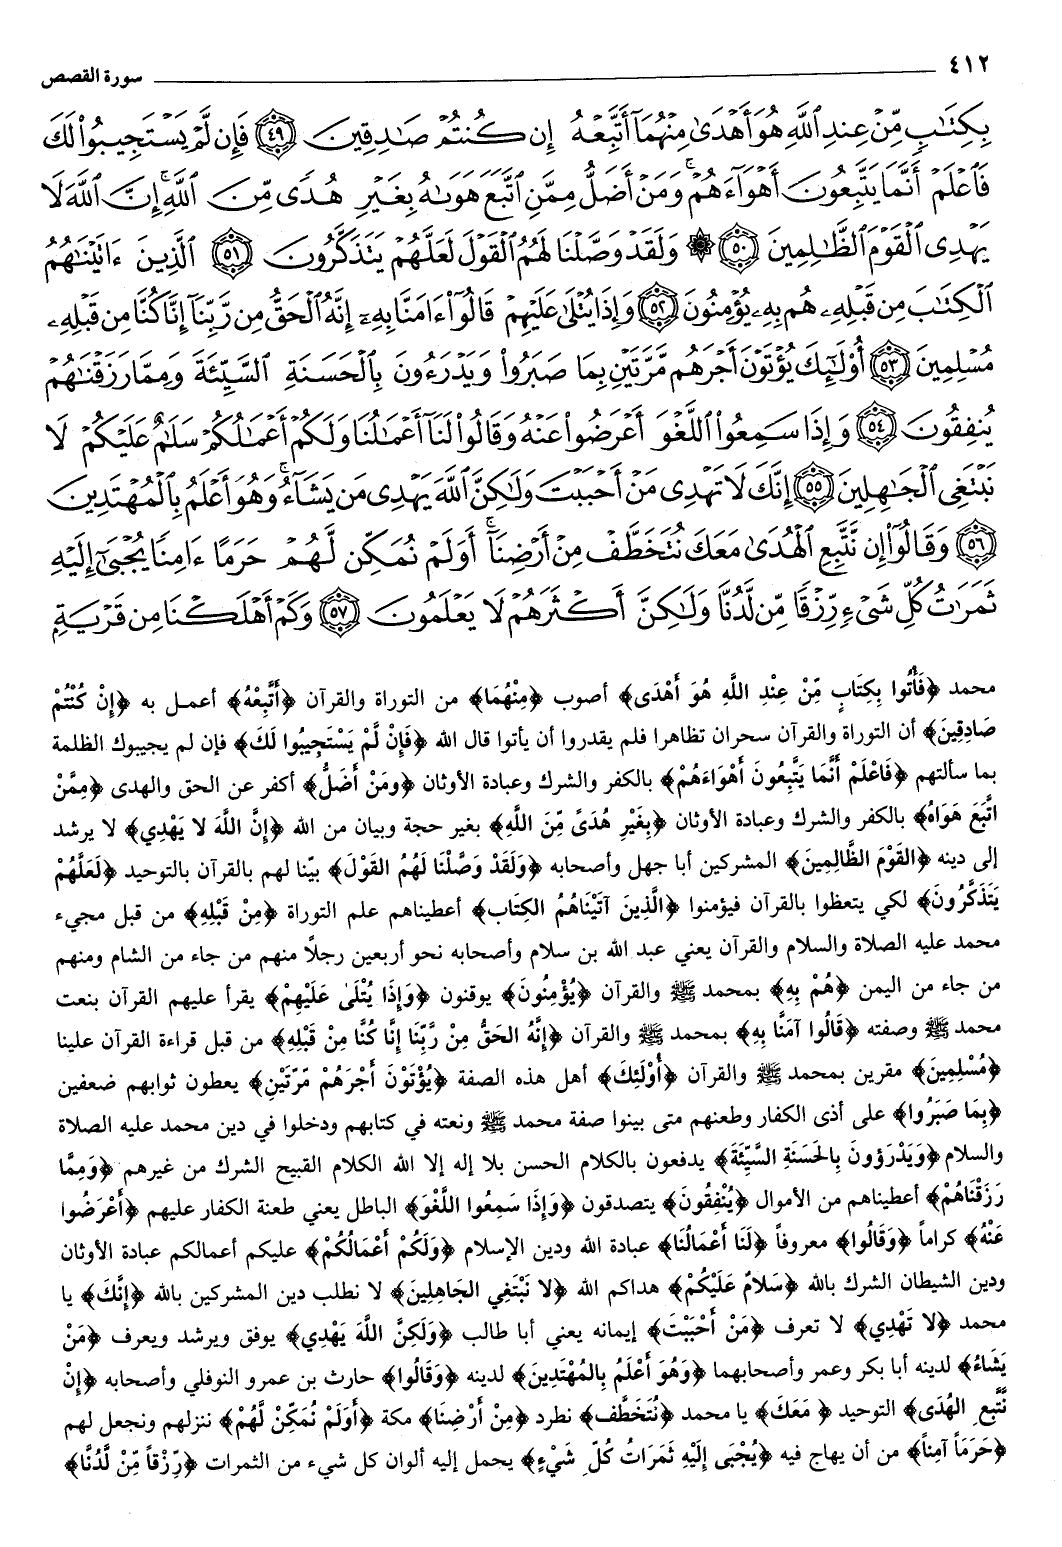 ٤١٢ سورة القصص
بِكِتَٰبٖ مِّنۡ عِندِ ٱللَّهِ هُوَ أَهۡدَىٰ مِنۡهُمَآ أَتَّبِعۡهُ إِن كُنتُمۡ صَٰدِقِينَ ٤٩ فَإِن لَّمۡ يَسۡتَجِيبُواْ لَكَ
فَٱعۡلَمۡ أَنَّمَا يَتَّبِعُونَ أَهۡوَآءَهُمۡۚ وَمَنۡ أَضَلُّ مِمَّنِ ٱتَّبَعَ هَوَىٰهُ بِغَيۡرِ هُدٗى مِّنَ ٱللَّهِۚ إِنَّ ٱللَّهَ لَا
يَهۡدِي ٱلۡقَوۡمَ ٱلظَّٰلِمِينَ ٥٠ ۞ وَلَقَدۡ وَصَّلۡنَا لَهُمُ ٱلۡقَوۡلَ لَعَلَّهُمۡ يَتَذَكَّرُونَ ٥١ ٱلَّذِينَ ءَاتَيۡنَٰهُمُ
ٱلۡكِتَٰبَ مِن قَبۡلِهِۦ هُم بِهِۦ يُؤۡمِنُونَ ٥٢ وَإِذَا يُتۡلَىٰ عَلَيۡهِمۡ قَالُوٓاْ ءَامَنَّا بِهِۦٓ إِنَّهُ ٱلۡحَقُّ مِن رَّبِّنَآ إِنَّا كُنَّا مِن قَبۡلِهِۦ
مُسۡلِمِينَ ٥٣ أُوْلَٰٓئِكَ يُؤۡتَوۡنَ أَجۡرَهُم مَّرَّتَيۡنِ بِمَا صَبَرُواْ وَيَدۡرَءُونَ بِٱلۡحَسَنَةِ ٱلسَّيِّئَةَ وَمِمَّا رَزَقۡنَٰهُمۡ
يُنفِقُونَ ٥٤ وَإِذَا سَمِعُواْ ٱللَّغۡوَ أَعۡرَضُواْ عَنۡهُ وَقَالُواْ لَنَآ أَعۡمَٰلُنَا وَلَكُمۡ أَعۡمَٰلُكُمۡ سَلَٰمٌ عَلَيۡكُمۡ لَا
نَبۡتَغِي ٱلۡجَٰهِلِينَ ٥٥ إِنَّكَ لَا تَهۡدِي مَنۡ أَحۡبَبۡتَ وَلَٰكِنَّ ٱللَّهَ يَهۡدِي مَن يَشَآءُۚ وَهُوَ أَعۡلَمُ بِٱلۡمُهۡتَدِينَ
٥٦ وَقَالُوٓاْ إِن نَّتَّبِعِ ٱلۡهُدَىٰ مَعَكَ نُتَخَطَّفۡ مِنۡ أَرۡضِنَآۚ أَوَلَمۡ نُمَكِّن لَّهُمۡ حَرَمًا ءَامِنٗا يُجۡبَىٰٓ إِلَيۡهِ
ثَمَرَٰتُ كُلِّ شَيۡءٖ رِّزۡقٗا مِّن لَّدُنَّا وَلَٰكِنَّ أَكۡثَرَهُمۡ لَا يَعۡلَمُونَ ٥٧ وَكَمۡ أَهۡلَكۡنَا مِن قَرۡيَةِۭ
محمد ﴿فَأْتُوا بِكِتَابٍ مِّنْ عِنْدِ اللَّهِ هُوَ أَهْدَى﴾ أصوب ﴿مِنْهُمَا﴾ من التوراة والقرآن ﴿أَتَّبِعْهُ﴾ أعمل به ﴿إِنْ كُنْتُمْ
صَادِقِينَ﴾ أن التوراة والقرآن سحران تظاهرا فلم يقدروا أن يأتوا قال الله ﴿فَإِنْ لَّمْ يَسْتَجِيبُوا لَكَ﴾ فإن لم يجيبوك الظلمة
بما سألتهم ﴿فَاعْلَمْ أَنَّمَا يَتَّبِعُونَ أَهْوَاءَهُمْ﴾ بالكفر والشرك وعبادة الأوثان ﴿ومَنْ أَضَلُّ﴾ أكفر عن الحق والهدى ﴿مِمَّنْ
اتَّبَعَ هَوَاهُ﴾ بالكفر والشرك وعبادة الأوثان ﴿بِغَيْرِ هُدَىً مِّنَ اللَّهِ﴾ بغير حجة وبيان من الله ﴿إِنَّ اللَّهَ لا يَهْدِي﴾ لا يرشد
إلى دينه ﴿القَوْمَ الظَّالِمِينَ﴾ المشركين أبا جهل وأصحابه ﴿وَلَقَدْ وَصَّلْنَا لَهُمُ القَوْلَ﴾ بيّنا لهم بالقرآن بالتوحيد ﴿لَعَلَّهُمْ
يَتَذَكَّرُونَ﴾ لكي يتعظوا بالقرآن فيؤمنوا ﴿الَّذِينَ آتَيْنَاهُمُ الكِتَابَ﴾ أعطيناهم علم التوراة ﴿مِنْ قَبْلِهِ﴾ من قبل مجيء
محمد عليه الصلاة والسلام والقرآن يعني عبد الله بن سلام وأصحابه نحو أربعين رجلاً منهم من جاء من الشام ومنهم
من جاء من اليمن ﴿هُمْ بِهِ﴾ بمحمد ﷺ والقرآن ﴿يُؤْمِنُونَ﴾ يوقنون ﴿وَإِذَا يُتْلَى عَلَيْهِمْ﴾ يقرأ عليهم القرآن بنعت
محمد ﷺ وصفته ﴿قَالُوا آمَنَّا بِهِ﴾ بمحمد ﷺ والقرآن ﴿إِنَّهُ الحَقُّ مِنْ رَّبِّنَا إِنَّا كُنَّا مِنْ قَبْلِهِ﴾ من قبل قراءة القرآن علينا
﴿مُسْلِمِينَ﴾ مقرين بمحمد ﷺ والقرآن ﴿أُوْلَئِكَ﴾ أهل هذه الصفة ﴿يُؤْتَوْنَ أَجْرَهُمْ مَرّتَيْنِ﴾ يعطون ثوابهم ضعفين
﴿بِمَا صَبَرُوا﴾ على أذى الكفار وطعنهم متى بينوا صفة محمد ﷺ ونعته في كتابهم ودخلوا في دين محمد عليه الصلاة
والسلام ﴿وَيَدْرَؤونَ بِالحَسَنَةِ السَّيِّئَةَ﴾ يدفعون بالكلام الحسن بلا إله إلا الله الكلام القبيح الشرك من غيرهم ﴿وَمِمَّا
رَزَقْنَاهُمْ﴾ أعطيناهم من الأموال ﴿يُنْفِقُونَ﴾ يتصدقون ﴿وَإِذَا سَمِعُوا اللَّغْوَ﴾ الباطل يعني طعنة الكفار عليهم ﴿أَعْرَضُوا
عَنْهُ﴾ كراماً ﴿وَقَالُوا﴾ معروفاً ﴿لَنَا أَعْمَالُنَا﴾ عبادة الله ودين الإسلام ﴿وَلَكُمْ أَعْمَالُكُمْ﴾ عليكم أعمالكم عبادة الأوثان
ودين الشيطان الشرك بالله ﴿سَلامٌ عَلَيْكُمْ﴾ هداكم الله ﴿لا نَبْتَغِي الجَاهِلِينَ﴾ لا نطلب دين المشركين بالله ﴿إِنَّكَ﴾ يا
محمد ﴿لا تَهْدِي﴾ لا تعرف ﴿مَنْ أَحْبَبْتَ﴾ إيمانه يعني أبا طالب ﴿وَلَكِنَّ اللَّهَ يَهْدِي﴾ يوفق ويرشد ويعرف ﴿مَنْ
يَشَاءُ﴾ لدينه أبا بكر وعمر وأصحابهما ﴿وَهُوَ أَعْلَمُ بِالمُهْتَدِينَ﴾ لدينه ﴿وَقَالُوا﴾ حارث بن عمرو النوفلي وأصحابه ﴿إِنْ
نَّتَّبِعِ الهُدَى﴾ التوحيد ﴿مَعَكَ﴾ يا محمد ﴿نُتَخَطَّف﴾ نطرد ﴿مِنْ أَرْضِنَا﴾ مكة ﴿أَوَلَمْ نُمَكِّنْ لَّهُمْ﴾ ننزلهم ونجعل لهم
﴿حَرَمَاً آمِناً﴾ من أن يهاج فيه ﴿يُجْبَى إِلَيْهِ ثَمَرَاتُ كُلِّ شَيْءٍ﴾ يحمل إليه ألوان كل شيء من الثمرات ﴿رِّزْقاً مِّنْ لَّدُنَّا﴾